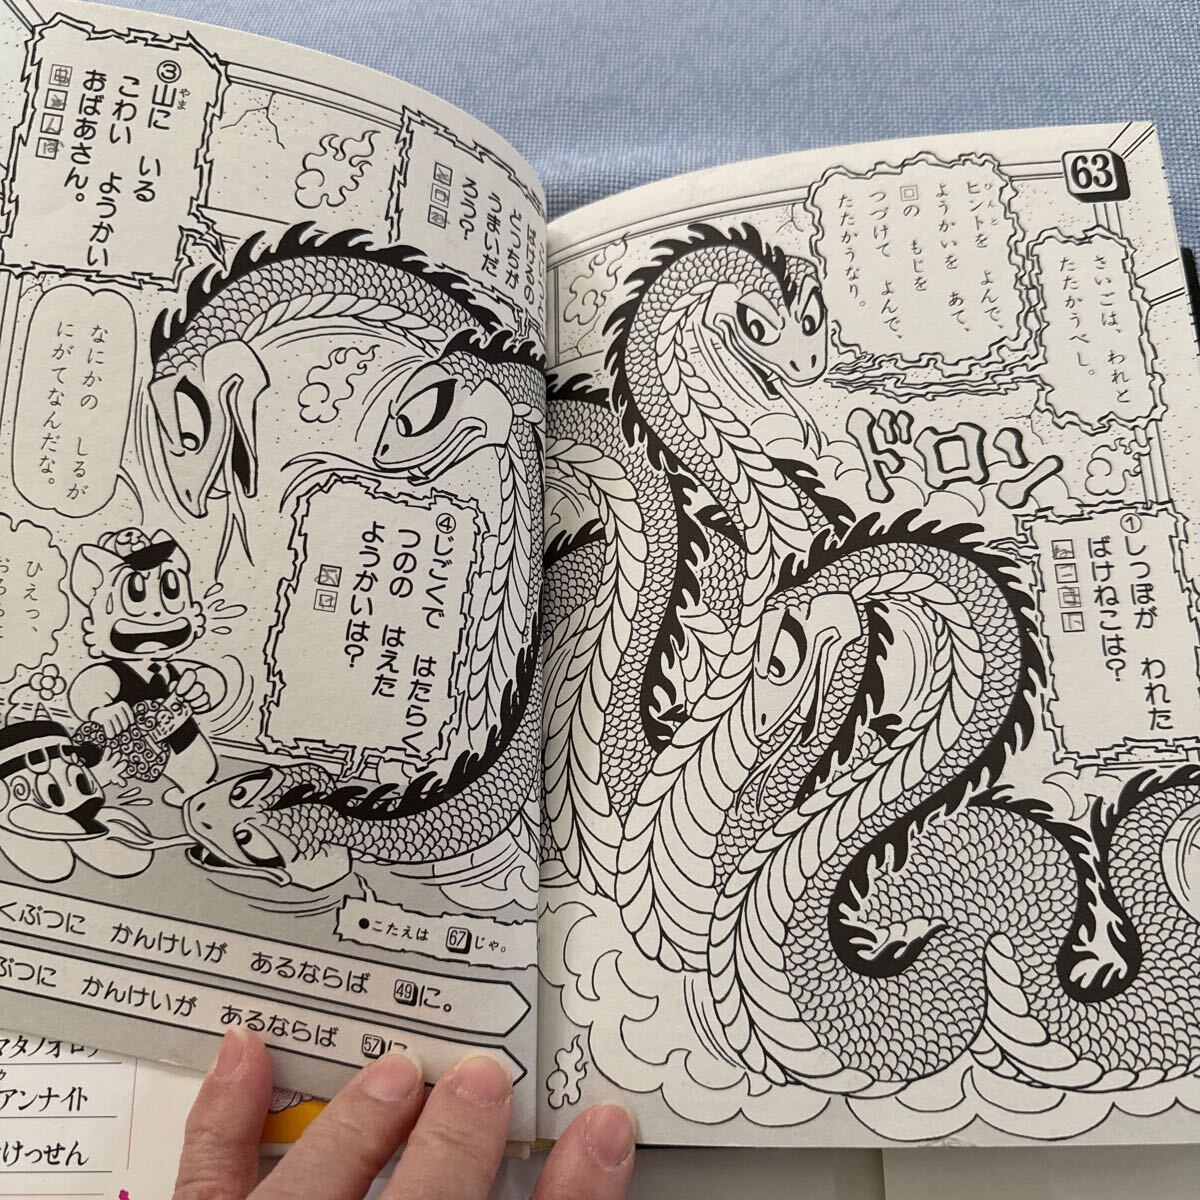 63
さいごは、われと
たたかうべし。
ヒントを よんで、
ひんと
ようかいを あて、
□の もじを
つづけて よんで、
たたかうなり。
ドロン
①しっぽが われた
ばけねこは?
ねこまた
うまいだ
ろう?
③山に いる
やま
こわい ようかい
おばあさん。
④じごくで はたらく
つのの はえた
ようかいは?
おに
なにかの しるが
にがてなんだな。
ひえっ、
●こたえは 67じゃ。
くぶつに かんけいが あるならば 49に。
ぶつに かんけいが あるならば 57に
マタノオロチ
アンナイト
けっせん